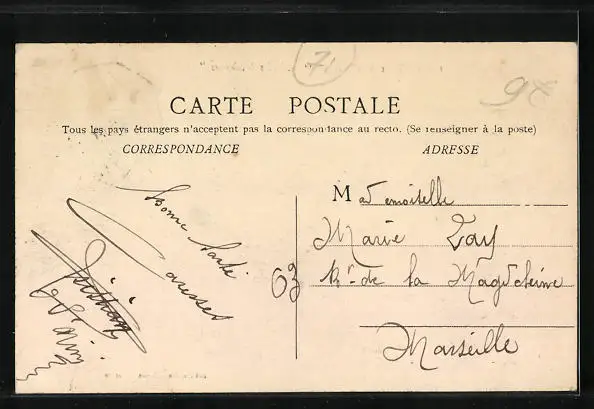 71
98
CARTE POSTALE
Tous les pays étrangers n'acceptent pas la correspondance au recto. (Se renseigner à la poste)
CORRESPONDANCE
ADRESSE
Bonne Santé
Caresses
Mademoiselle
Marie Zay
Bd de la Magdeleine
63
Marseille